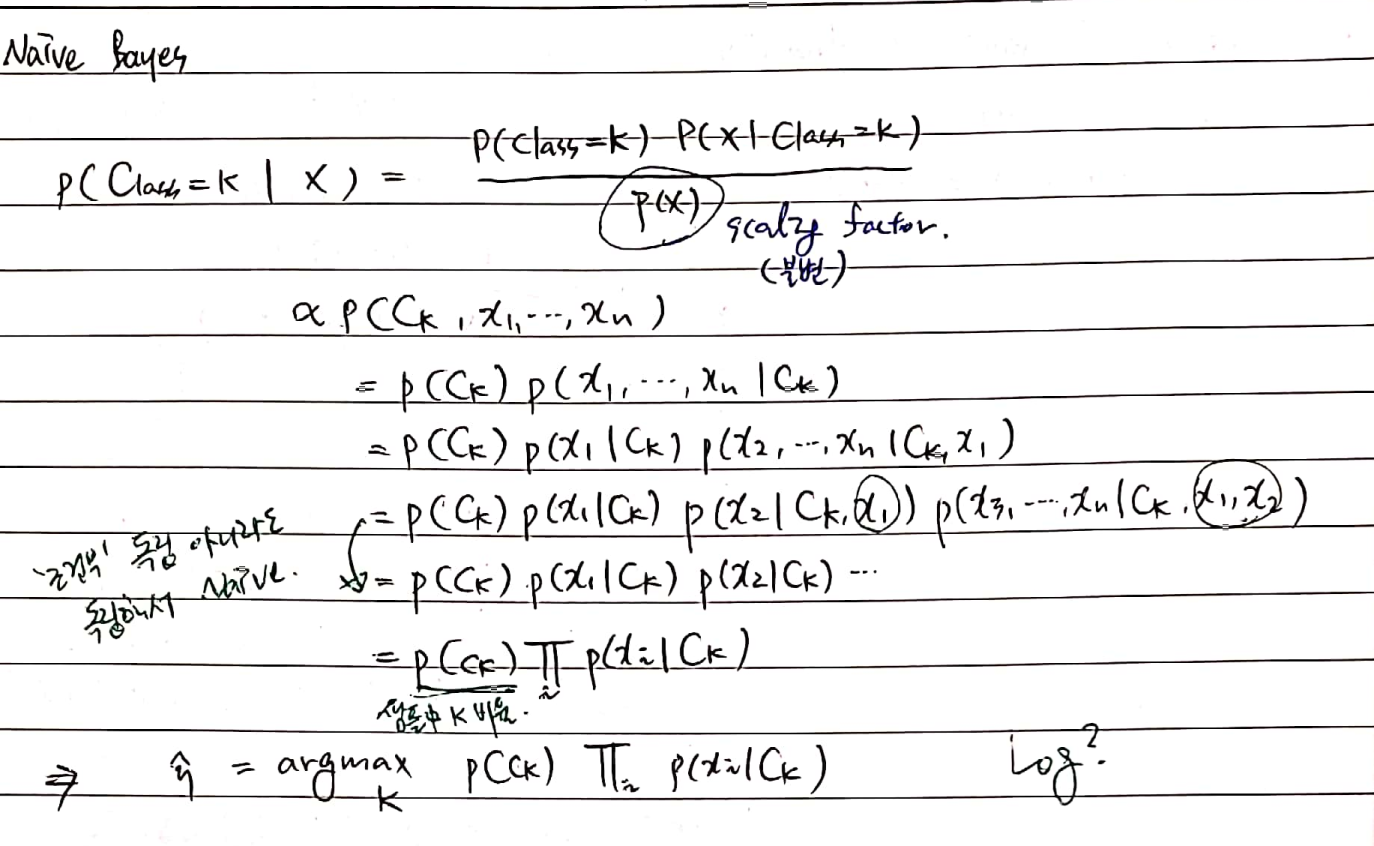 Naïve Bayes
P(Class=k | X) = P(Class=k) P(X | Class=k) / P(X)
factor.
(불변)
∝ P(Ck, x1, ..., xn)
= P(Ck) p(x1, ..., xn | Ck)
= P(Ck) p(x1 | Ck) p(x2, ..., xn | Ck, x1)
= P(Ck) p(x1 | Ck) p(x2 | Ck, x1) p(x3, ..., xn | Ck, x1, x2)
'조건부' 독립 아니라도
독립해서 Naïve.
= P(Ck) p(x1 | Ck) p(x2 | Ck) ...
= P(Ck) ∏i p(xi | Ck)
샘플中 K 비율.
⇒ ŷ = argmax K P(Ck) ∏i p(xi | Ck) Log?